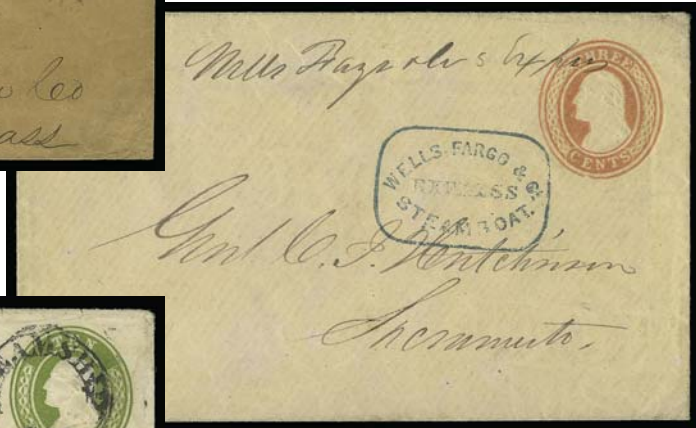 Co
ass
Wells Fargo & Co's Express
THREE
CENTS
WELLS, FARGO & Co.
EXPRESS
STEAMBOAT.
Genl. C. I. Hutchinson
Sacramento.